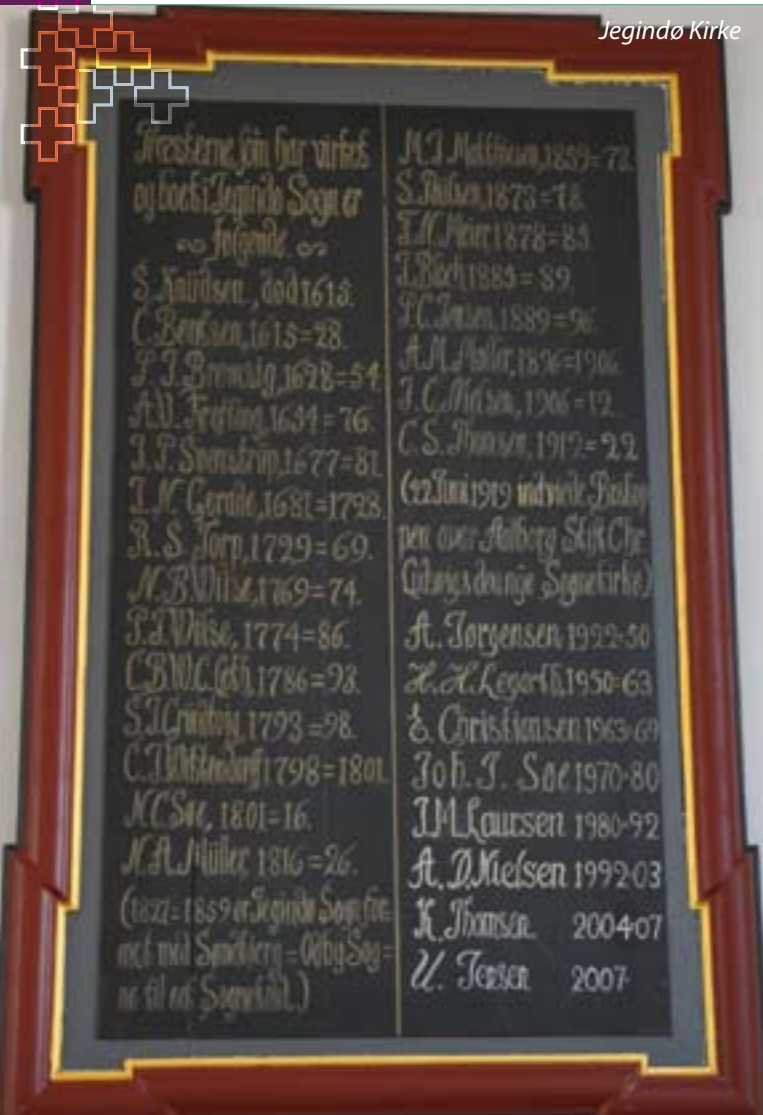 Jegindø Kirke
Præsterne som har virket
og boet i Jegindø Sogn er
følgende
S. Knudsen, død 1615.
C. Bentsen, 1615=28.
P. J. Bremsig, 1628=54
A. V. Fretling, 1654=76.
J. P. 1677=81.
J. N. 1681=1728.
R. S. Torp, 1729=69.
N. B. Wilse, 1769=74.
P. J. Wilse, 1774=86.
C. B. W. C. 1786=93.
S. J. 1793=98.
C. J. 1798=1801.
N. C. Søe, 1801=16.
N. A. Müller, 1816=26.
(1827=1859 er Jegindø Sogn for=
enet med Søndbjerg=Odby Sog=
ne til eet Sognekald.)
M. J. Matthiesen, 1859=73.
S. Poulsen, 1873=78.
F. N. Meier, 1878=85.
J. Bloch 1885=89.
P. C. Jensen, 1889=96.
A. M. Møller, 1896=1906.
J. C. Nielsen, 1906=12.
C. S. Thomsen, 1912=22
(22 Juni 1919 indviede Bisko=
pen over Aalborg Stift Chr.
Ludwigs den nye Sognekirke)
A. Jørgensen 1922-50
H. H. Legarth, 1950=63
E. Christiansen 1963-69
Joh. T. Søe 1970-80
J. M. Laursen 1980-92
A. D. Nielsen 1992-03
K. Thomsen 2004-07
U. Jensen 2007-